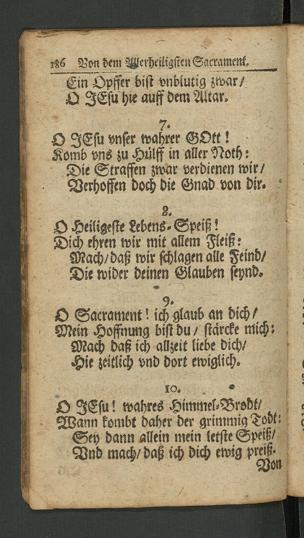 186 Von dem Allerheiligsten Sacrament.
Ein Opffer bist vnblutig zwar/
O JEsu hie auff dem Altar.
7.
O JEsu vnser wahrer GOtt!
Komb vns zu Hülff in aller Noth:
Die Straffen zwar verdienen wir/
Verhoffen doch die Gnad von dir.
8.
O Heiligeste Lebens-Speiß!
Dich ehren wir mit allem Fleiß:
Mach/ daß wir schlagen alle Feind/
Die wider deinen Glauben seynd.
9.
O Sacrament! ich glaub an dich/
Mein Hoffnung bist du/ stärcke mich:
Mach daß ich allzeit liebe dich/
Hie zeitlich vnd dort ewiglich.
10.
O JEsu! wahres Himmel-Brodt/
Wann kombt daher der grimmig Todt:
Sey dann allein mein letste Speiß/
Vnd mach/ daß ich dich ewig preiß.
Von